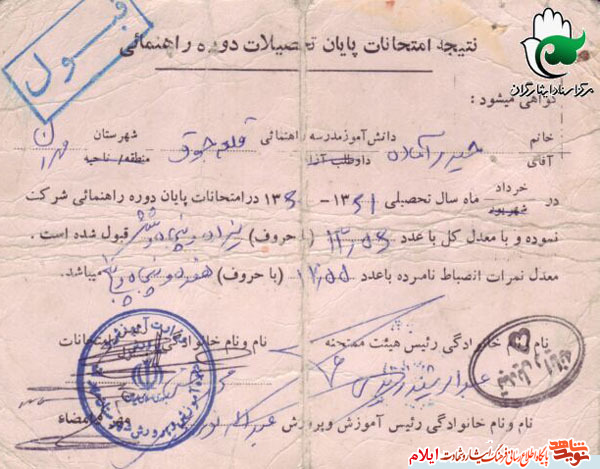 قبول
مرکز اسناد ایثارگران
نتیجه امتحانات پایان تحصیلات دوره راهنمائی
گواهی میشود :
خانم
آقای
حیدر آماده
دانش‌آموز مدرسه راهنمائی
داوطلب آزاد
قلعه جوق
شهرستان
منطقه/ ناحیه
مهران
در خرداد
شهریور
ماه سال تحصیلی ۱۳۶۱ - ۱۳۶۰ در امتحانات پایان دوره راهنمائی شرکت
نموده و با معدل کل با عدد ۱۳/۵۶ (با حروف) سیزده و پنجاه و شش قبول شده است .
معدل نمرات انضباط نامبرده با عدد ۱۷/۵۵ (با حروف) هفده و پنجاه و پنج میباشد.
نام و نام خانوادگی رئیس هیئت ممتحنه
نام و نام خانوادگی
امتحانات
نام و نام خانوادگی رئیس آموزش و پرورش
مهر و امضاء
نوید شاهد
پایگاه اطلاع رسانی فرهنگ ایثار و شهادت ایلام